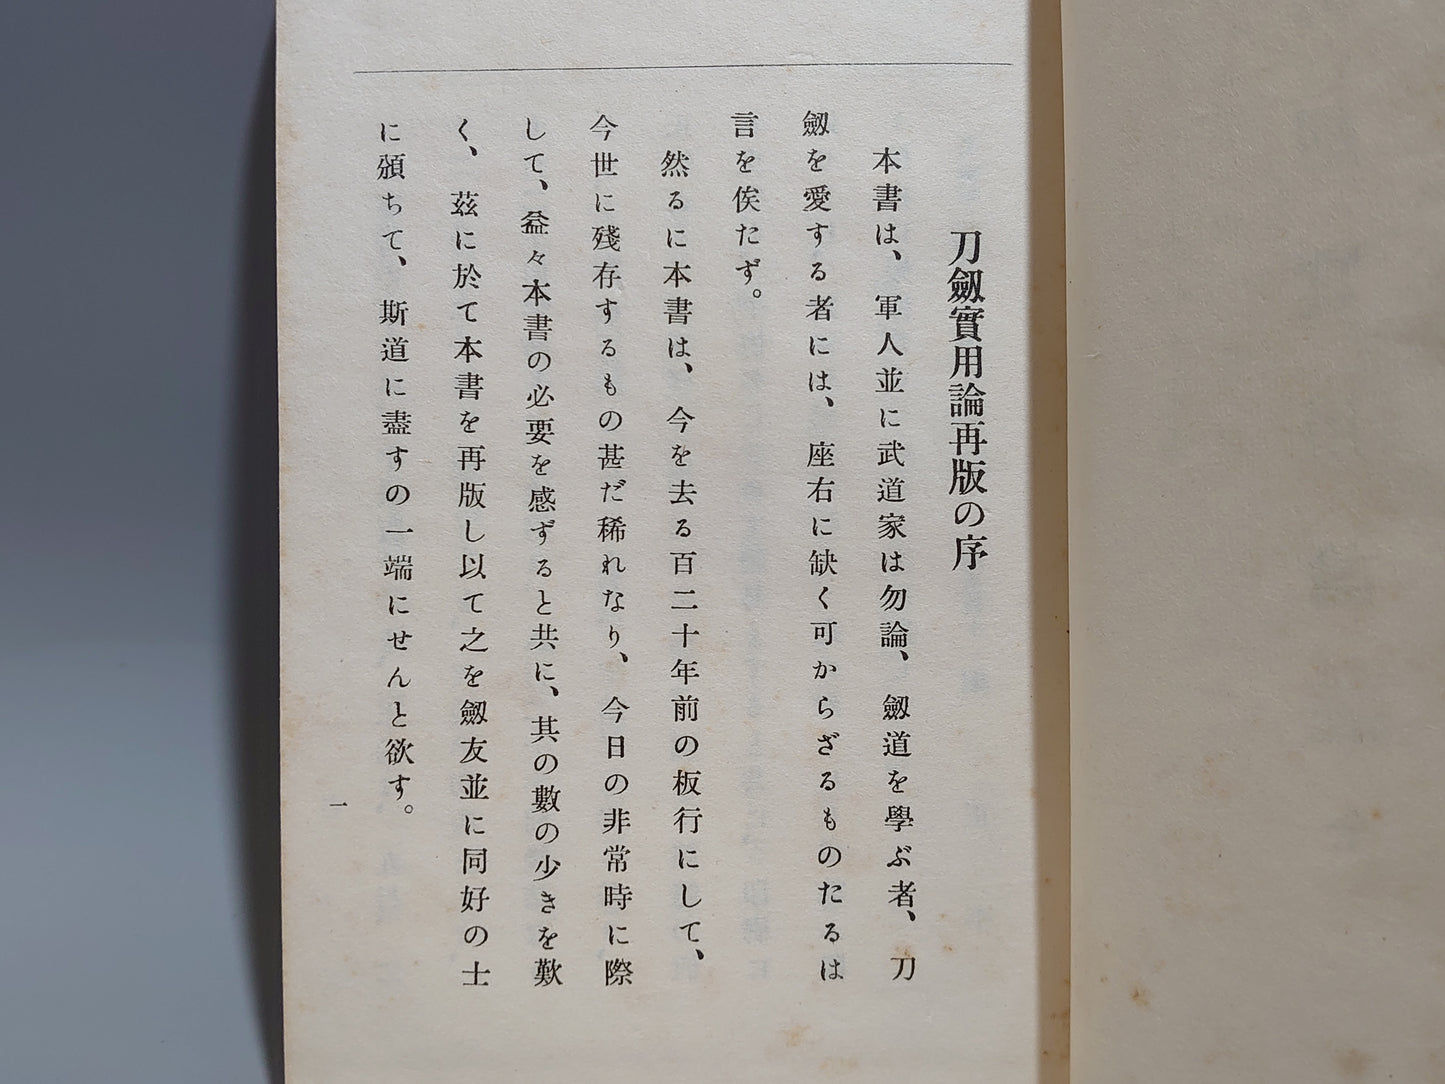 刀劔實用論再版の序
本書は、軍人並に武道家は勿論、劔道を學ぶ者、刀
劔を愛する者には、座右に缺く可からざるものたるは
言を俟たず。
然るに本書は、今を去る百二十年前の板行にして、
今世に殘存するもの甚だ稀れなり、今日の非常時に際
して、益々本書の必要を感ずると共に、其の數の少きを歎
く、茲に於て本書を再版し以て之を劔友並に同好の士
に頒ちて、斯道に盡すの一端にせんと欲す。
一